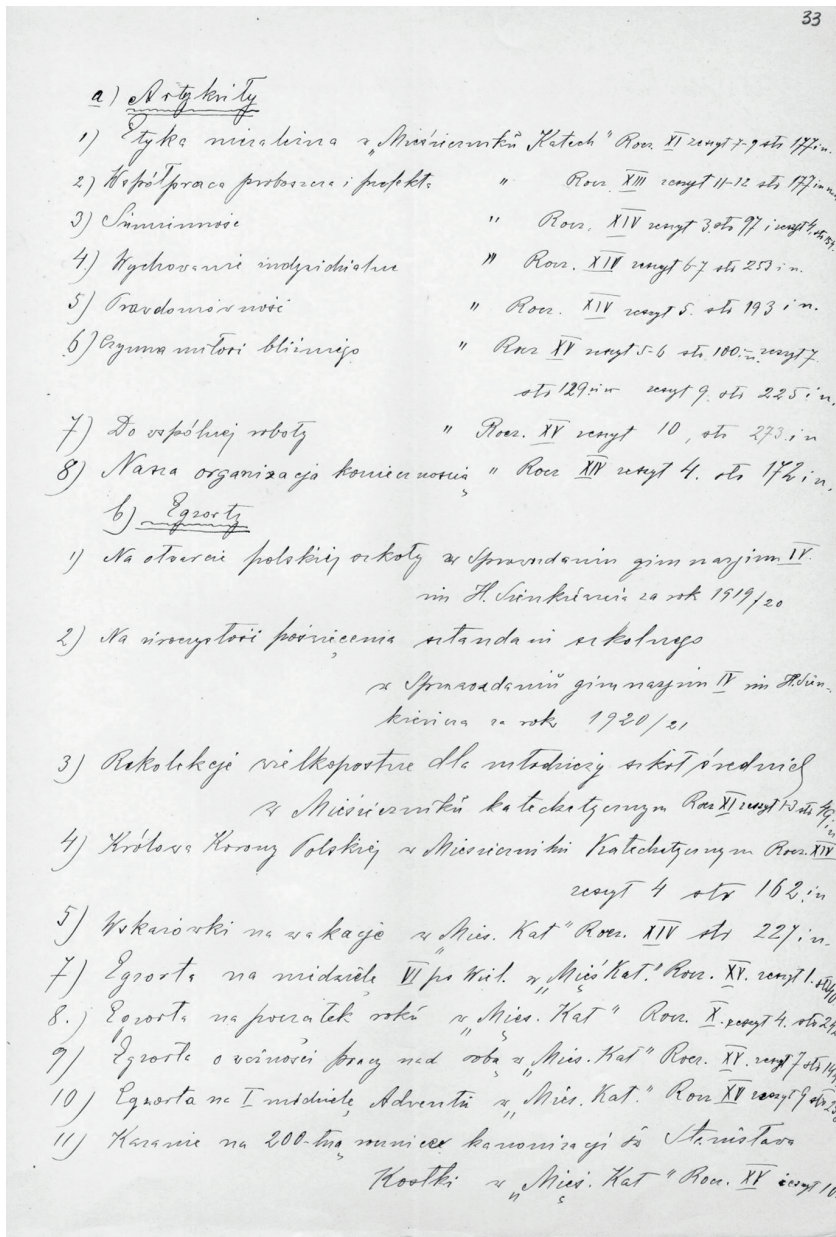 33
a) Artykuły
1) Etyka niezależna w „Miesięczniku Katech" Rocz. XI zeszyt 7-9 str 177 in.
2) Współpraca proboszcza i prefekta " Rocz. XIII zeszyt 11-12 str 177 in
3) Sumienność " Rocz. XIV zeszyt 3. str 97 i zeszyt 4.
4.) Wychowanie indywidualne " Rocz. XIV zeszyt 6-7 str 253 i n.
5) Prawdomówność " Rocz. XIV zeszyt 5. str 193 i n.
6) Czynna miłość bliźniego " Rocz XV zeszyt 5-6 str. 100. in. zeszyt 7.
str 129. in zeszyt 9. str 225 i n.
7) Do wspólnej roboty " Rocz. XV zeszyt 10, str 273. in
8) Nasza organizacja koniecznością " Rocz XIV zeszyt 4. str 172 i n.
b) Egzorty
1) Na otwarcie polskiej szkoły w Sprawozdaniu gimnazjum IV.
im H. Sienkiewicza za rok 1919/20
2) Na uroczystość poświęcenia sztandaru szkolnego
w Sprawozdaniu gimnazjum IV im H. Sien-
kiewicza za rok 1920/21
3) Rekolekcje wielkopostne dla młodzieży szkół średnich
w Miesięczniku katechetycznym Rocz XI zeszyt 1-3 str
4) Królowa Korony Polskiej w Miesięczniku Katechetycznym Rocz. XIV
zeszyt 4 str 162. in
5) Wskazówki na wakacje w „Mies. Kat" Rocz. XIV str 227 i n.
7) Egzorta na niedzielę VI po Wiel. w „Mies Kat." Rocz. XV. zeszyt 1.
8.) Egzorta na początek roku w „Mies. Kat" Rocz. X. zeszyt 4. str
9) Egzorta o ważności pracy nad sobą w „Mies. Kat" Rocz. XV. zeszyt 7 str
10) Egzorta na I niedzielę Adwentu w „Mies. Kat." Rocz XV zeszyt 9 str
11) Kazanie na 200-tną rocznicę kanonizacji św Stanisława
Kostki w „Mieś. Kat" Rocz. XV zeszyt 10